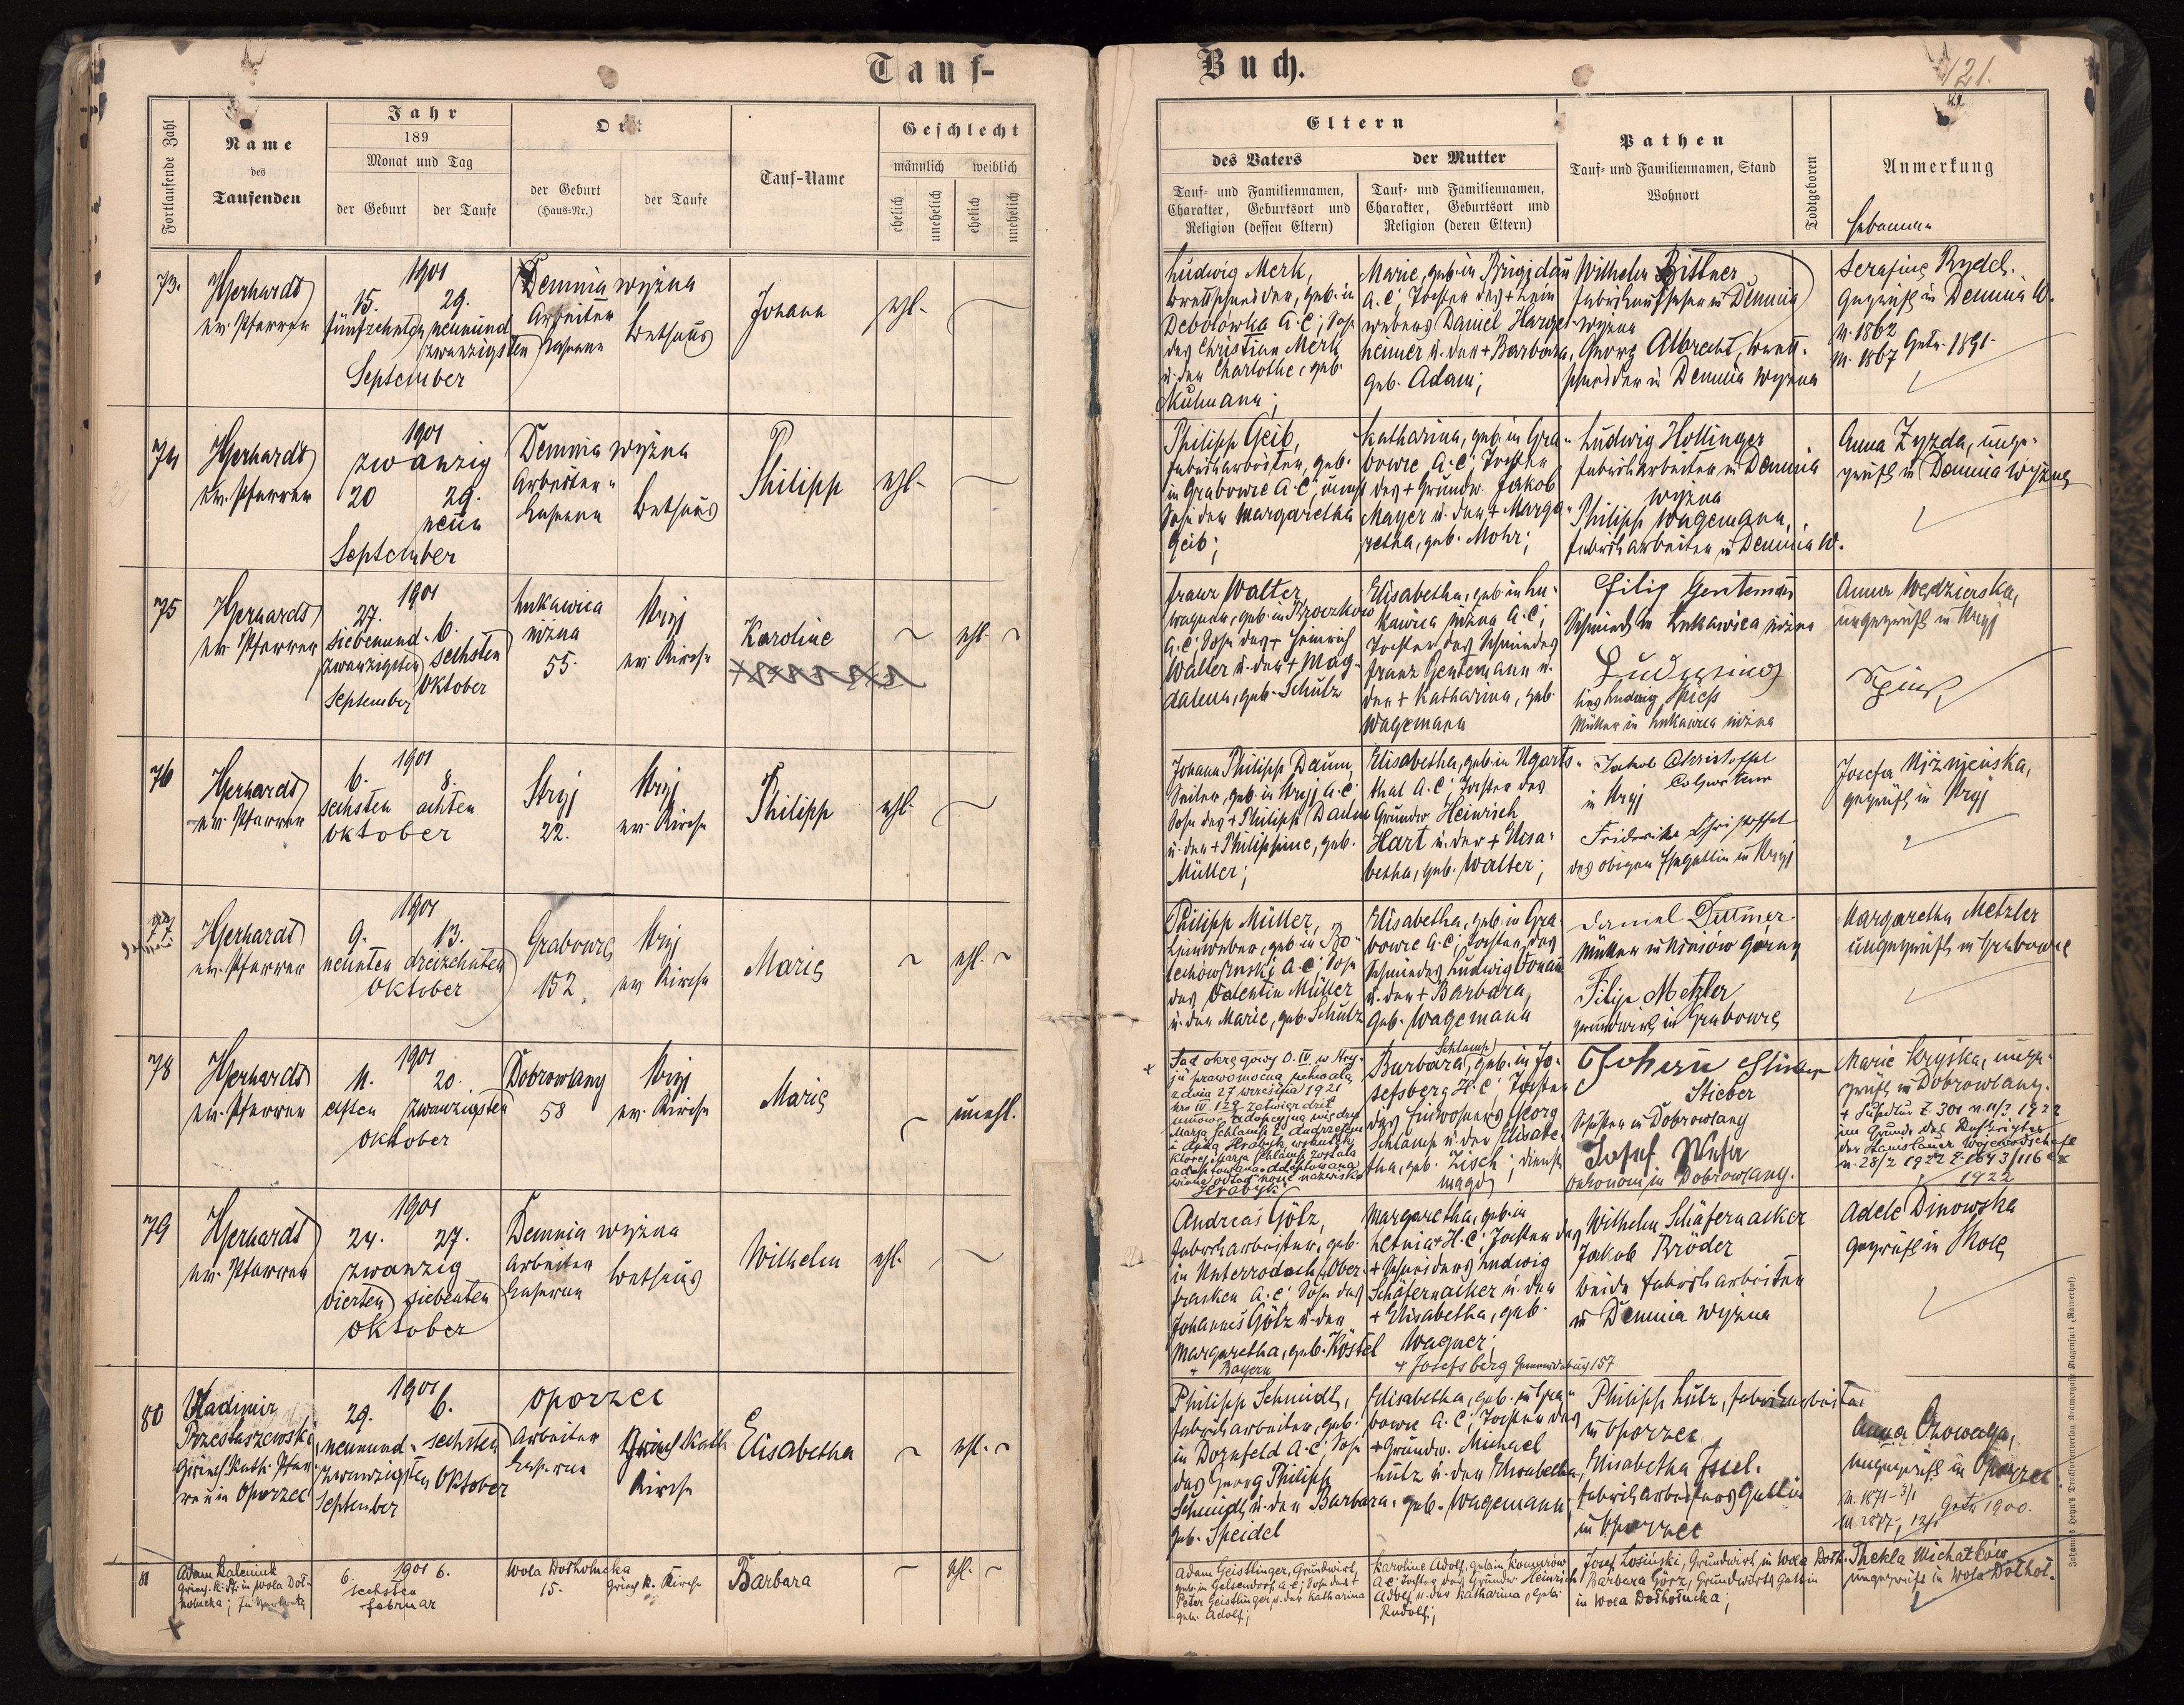 Tauf-
Buch.
121.
Fortlaufende Zahl
Name
des
Taufenden
Jahr
189
Monat und Tag
der Geburt
der Taufe
Ort
der Geburt
(Haus-Nr.)
der Taufe
Tauf-Name
Geschlecht
männlich
weiblich
ehelich
unehelich
ehelich
unehelich
Eltern
des Vaters
der Mutter
Tauf- und Familiennamen,
Charakter, Geburtsort und
Religion (dessen Eltern)
Tauf- und Familiennamen,
Charakter, Geburtsort und
Religion (deren Eltern)
Pathen
Tauf- und Familiennamen, Stand
Wohnort
Todtgeboren
Anmerkung
Hebamme
73.
Gerhardt
ev. Pfarrer
1901
15. 29.
fünfzehnten neunund
zwanzigsten
September
Demnia wyżna
Arbeiter
Kaserne
Bethaus
Johann
ehl.
Ludwig Merk,
Brettschneider, geb. in
Debolówka A.C; Sohn
des Christian Merk
u. der Charlothe, geb.
Kühmann;
Marie, geb. in Brigidau
A.C; Tochter des + Lein
webers Daniel Harges
heimer u. der + Barbara,
geb. Adam;
Wilhelm Bittner
Fabriksaufseher in Demnia
wyżna
Georg Albrecht, Brett-
schneider in Demnia wyżna
Serafine Rydel.
geprüft in Demnia W.
M. 1862
M. 1867 Getr. 1891.
74
Gerhardt
ev. Pfarrer
1901
zwanzig
20 29.
neun
September
Demnia wyżna
Arbeiter-
Kaserne
Bethaus
Philipp
ehl.
Philipp Geib,
Fabriksarbeiter, geb.
in Grabowce A.C; unehl
Sohn der Margaretha
Geib;
Katharina, geb. in Gra-
bowce A.C; Tochter
des + Grundw. Jakob
Mayer u. der + Marga-
retha, geb. Mohr;
Ludwig Hollinger
Fabriksarbeiter in Demnia
wyżna
Philipp Wagemann,
Fabriksarbeiter in Demnia W.
Anna Zyzda, unge-
prüft in Demnia wyżna
75
Gerhardt
ev. Pfarrer
1901
27. 6.
siebenund- sechsten
zwanzigsten
September Oktober
Lukawica
niżna
55.
Stryj
ev. Kirche
Karoline
ehl.
Franz Walter,
Wagner, geb. in
A.C; Sohn des + Heinrich
Walter u. der + Mag-
dalena, geb. Schulz
Elisabetha, geb. in Lu-
kawica niżna A.C;
Tochter des Schmiedes
Franz Gentemann u.
der + Katharina, geb.
Wagemann
Filip Genteman
Schmied in Lukawica niżna
Ludwig Spiess
Müller in Lukawica niżna
Anna Wędzierska,
ungeprüft in Stryj
76
Gerhardt
ev. Pfarrer
1901
6. 8.
sechsten achten
Oktober
Stryj
22.
Stryj
ev. Kirche
Philipp
ehl.
Johann Philipp Daum,
Seiler, geb. in Stryj A.C
Sohn des + Philipp Daum
u. der + Philippine, geb.
Müller;
Elisabetha, geb. in Ugarts-
thal A.C; Tochter des
Grundw. Heinrich
Hart u. der + Elisa-
betha, geb. Walter;
Jakob Christoffel
Colporteur
in Stryj
Friderike Christoffel
des obigen Ehegattin in Stryj
Josefa Niżnieńska,
geprüft in Stryj
77
Gerhardt
ev. Pfarrer
1901
9. 13.
neunten dreizehnten
Oktober
Grabowce
152.
Stryj
ev. Kirche
Marie
ehl.
Philipp Müller,
Leinweber, geb. in Bo-
lechow A.C; Sohn
des Valentin Müller
u. der Marie, geb. Schulz
Elisabetha, geb. in Gra-
bowce A.C; Tochter des
Schmiedes Ludwig Donau
u. der + Barbara,
geb. Wagemann
Daniel Dittmer
Müller in Winiów górny
Filip Metzler
Grundwirt in Grabowce
Margaretha Metzler
ungeprüft in Grabowce
78
Gerhardt
ev. Pfarrer
1901
11. 20.
elften zwanzigsten
Oktober
Dobrowlany
58
Stryj
ev. Kirche
Marie
unehl.
Sąd okręgowy O. IV w Stry-
ju prawomocną uchwałą
z dnia 27 września 1921
Nro IV. 129 zatwierdził
umowę adopcyjną między
Marją Schlamp a Andrzejem
i Anną Hrabyk, wskutek
której Marja Schlamp została
adoptowaną. Adoptowana
winna odtąd nosić nazwisko
Hrabyk.
Schlamp
Barbara, geb. in Jo-
sefsberg H.C; Tochter
des Einwohners Georg
Schlamp u. der Elisabe-
tha, geb. Zisch; Dienst
magd
Johann
Stieber
in Dobrowlany
Josef
Oekonom in Dobrowlany.
Marie Kryska, unge-
prüft in Dobrowlany.
im Grunde des
der Stanislauer Wojewodschaft
v. 28/2 1922 Z. 1643/116
1922
79
Gerhardt
ev. Pfarrer
1901
24. 27.
zwanzig
vierten siebenten
Oktober
Demnia wyżna
Arbeiter
Kaserne
Bethaus
Wilhelm
ehl.
Andreas Götz,
Fabriksarbeiter, geb.
in Unterrodach (Ober-
franken A.C; Sohn des
Johannes Götz u. der
Margaretha, geb. Köstel
+ Bayern
Margaretha, geb. in
Letnia + H.C; Tochter des
+ Schneiders Ludwig
Schäfernacker u. der
+ Elisabetha, geb.
Wagner;
+ Josefsberg 157
Wilhelm Schäfernacker
Jakob Bröder
beide Fabriksarbeiter
in Demnia wyżna
Adele Dinowska
geprüft in Skole
80
Wladimir
Przestaszewski
Griech. Kath. Pfar-
rer in Oporzec
1901
29. 6.
neunund- sechsten
zwanzigsten Oktober
September
Oporzec
Arbeiter
Kaserne
Griech Kath
Kirche
Elisabetha
ehl.
Philipp Schmidt,
Fabriksarbeiter, geb.
in Dornfeld A.C; Sohn
des Georg Philipp
Schmidt u. der Barbara
geb. Speidel
Elisabetha, geb. in Gra-
bowce A.C; Tochter des
+ Grundw. Michael
Lutz u. der Elisabetha,
geb. Wagemann;
Philipp Lutz, Fabriksarbeiter
in Oporzec
Elisabetha Issel.
Fabriksarbeiters Gattin
in Oporzec
Anna
ungeprüft in Oporzec
M. 1871 - 3/1
M. 1877, Getr. 1900.
81
Adam Kaleniuk
Griech. K. Pf. in Wola Doł-
hołucka;
1901
6. 6.
sechsten
Februar
Wola Dołhołucka
15.
Griech K. Kirche
Barbara
ehl.
Adam Geistlinger, Grundwirt,
geb. in Gelsendorf A.C; Sohn des +
Peter Geistlinger u. der Katharina
geb. Adolf;
Karoline Adolf, geb. in Komarów
A.C; Tochter des Grundw. Heinrich
Adolf u. der Katharina, geb.
Rudolf;
Josef Losiński, Grundwirt, in Wola Dołh.
Barbara Görz, Grundwirts Gattin
in Wola Dołhołucka;
Thekla Michałków
ungeprüft in Wola Dołhoł.